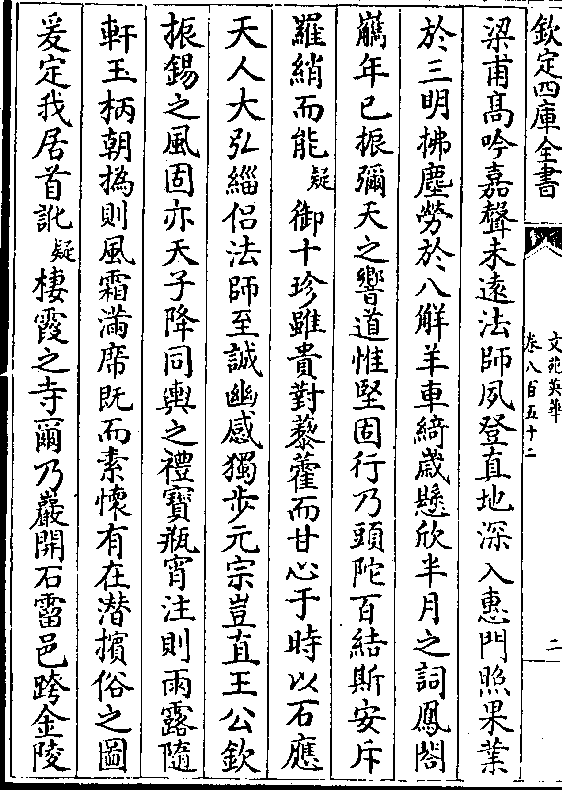 欽定四庫全書
文苑英華
卷八百五十二
二
梁甫髙吟嘉聲未遠法師夙登直地深入惠門照果業
於三明拂塵勞於八解羊車綺歲懸欣半月之詞鳳閣
觹年已振彌天之響道惟堅固行乃頭陀百結斯安斥
羅綃而能疑御十珍雖貴對藜藿而甘心于時以石應
天人大弘緇侣法師至誠幽感獨步元宗豈直王公欽
振錫之風固亦天子降同輿之禮寳瓶宵注則雨露隨
軒玉柄朝撝則風霜滿席既而素懷有在潛擯俗之圖
爰定我居首訛疑棲霞之寺爾乃巖開石霤邑跨金陵